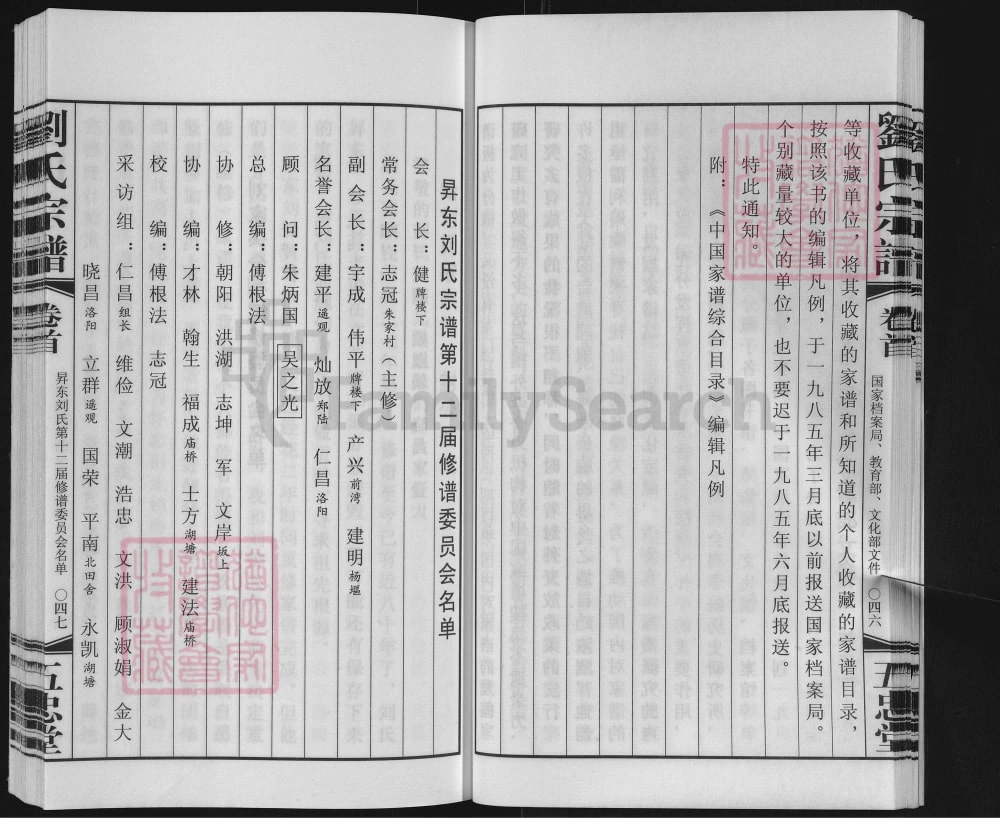 劉氏宗譜
卷首
国家档案局、教育部、文化部文件
〇四六
五忠堂
等收藏单位，将其收藏的家谱和所知道的个人收藏的家谱目录，
按照该书的编辑凡例，于一九八五年三月底以前报送国家档案局。
个别藏量较大的单位，也不要迟于一九八五年六月底报送。
特此通知。
附：《中国家谱综合目录》编辑凡例
昇东刘氏宗谱第十二届修谱委员会名单
会长：健牌楼下
常务会长：志冠朱家村（主修）
副会长：宇成 伟平牌楼下 产兴前湾 建明杨堰
名誉会长：建平遥观 灿放郑陆 仁昌洛阳
顾问：朱炳国 吴之光
总编：傅根法
协修：朝阳 洪湖 志坤 军 文岸坂上
协编：才林 翰生 福成庙桥 士方湖塘 建法庙桥
校编：傅根法 志冠
采访组：仁昌组长 维俭 文潮 浩忠 文洪 顾淑娟 金大
晓昌洛阳 立群遥观 国荣 平南北田舍 永凯湖塘
劉氏宗譜
卷首
昇东刘氏第十二届修谱委员会名单
〇四七
五忠堂
FamilySearch